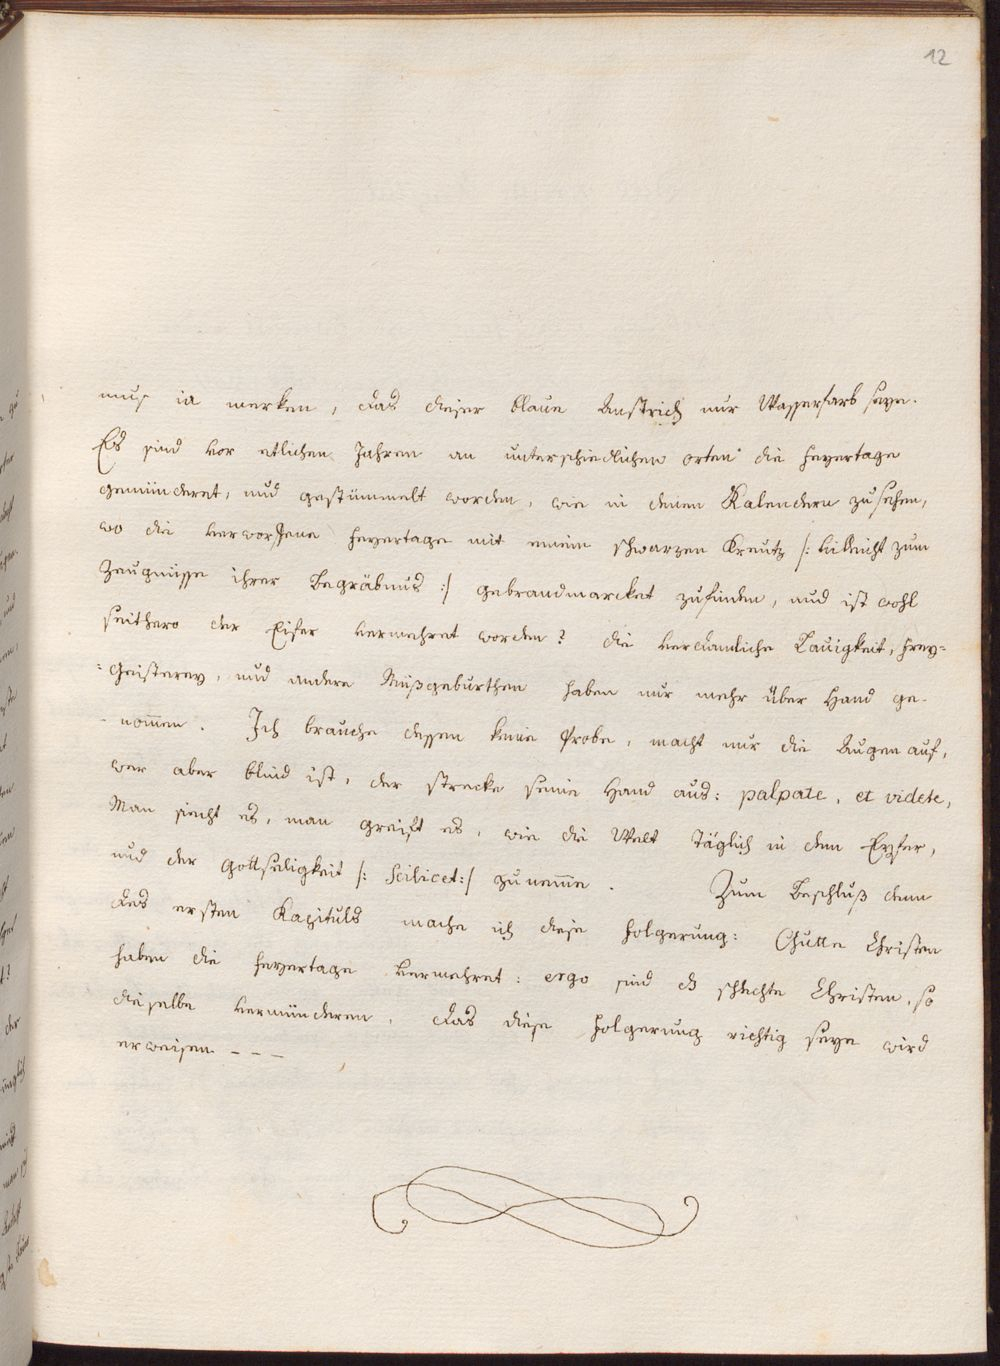 12
mus ia merken, das dieser blaue Anstrich nur Wasserfarb seye.
Es sind vor etlichen Jahren an unterschiedlichen orten die feyertage
gemünderet, und gestümmelt worden, wie in denen Kalendern zu sehen,
wo die verworfene feyertage mit einem schwarzen Kreutz /: villeicht zum
Zeugnüsse ihrer Begräbnus :/ gebrandmarcket zu finden, und ist wohl
seithero der Eifer vermehret worden? die verdamliche Lauigkeit, frey=
=Geisterey, und andere Müßgeburthen haben nur mehr über Hand ge-
- nom̄en. Ich brauche dessen keine Probe, macht nur die Augen auf,
wer aber blind ist, der strecke seine Hand aus: palpate, et videte,
Man sieht es, man greift es, wie die Welt täglich in dem Eyfer,
und der Gottseligkeit /: scilicet :/ zunem̄e. Zum Beschluß denn
des ersten Kapituls mache ich diese folgerung: Gutte Christen
haben die feyertage vermehret: ergo sind es schlechte Christen, so
dieselbe vermünderen, das diese folgerung richtig seye wird
erweisen - - -